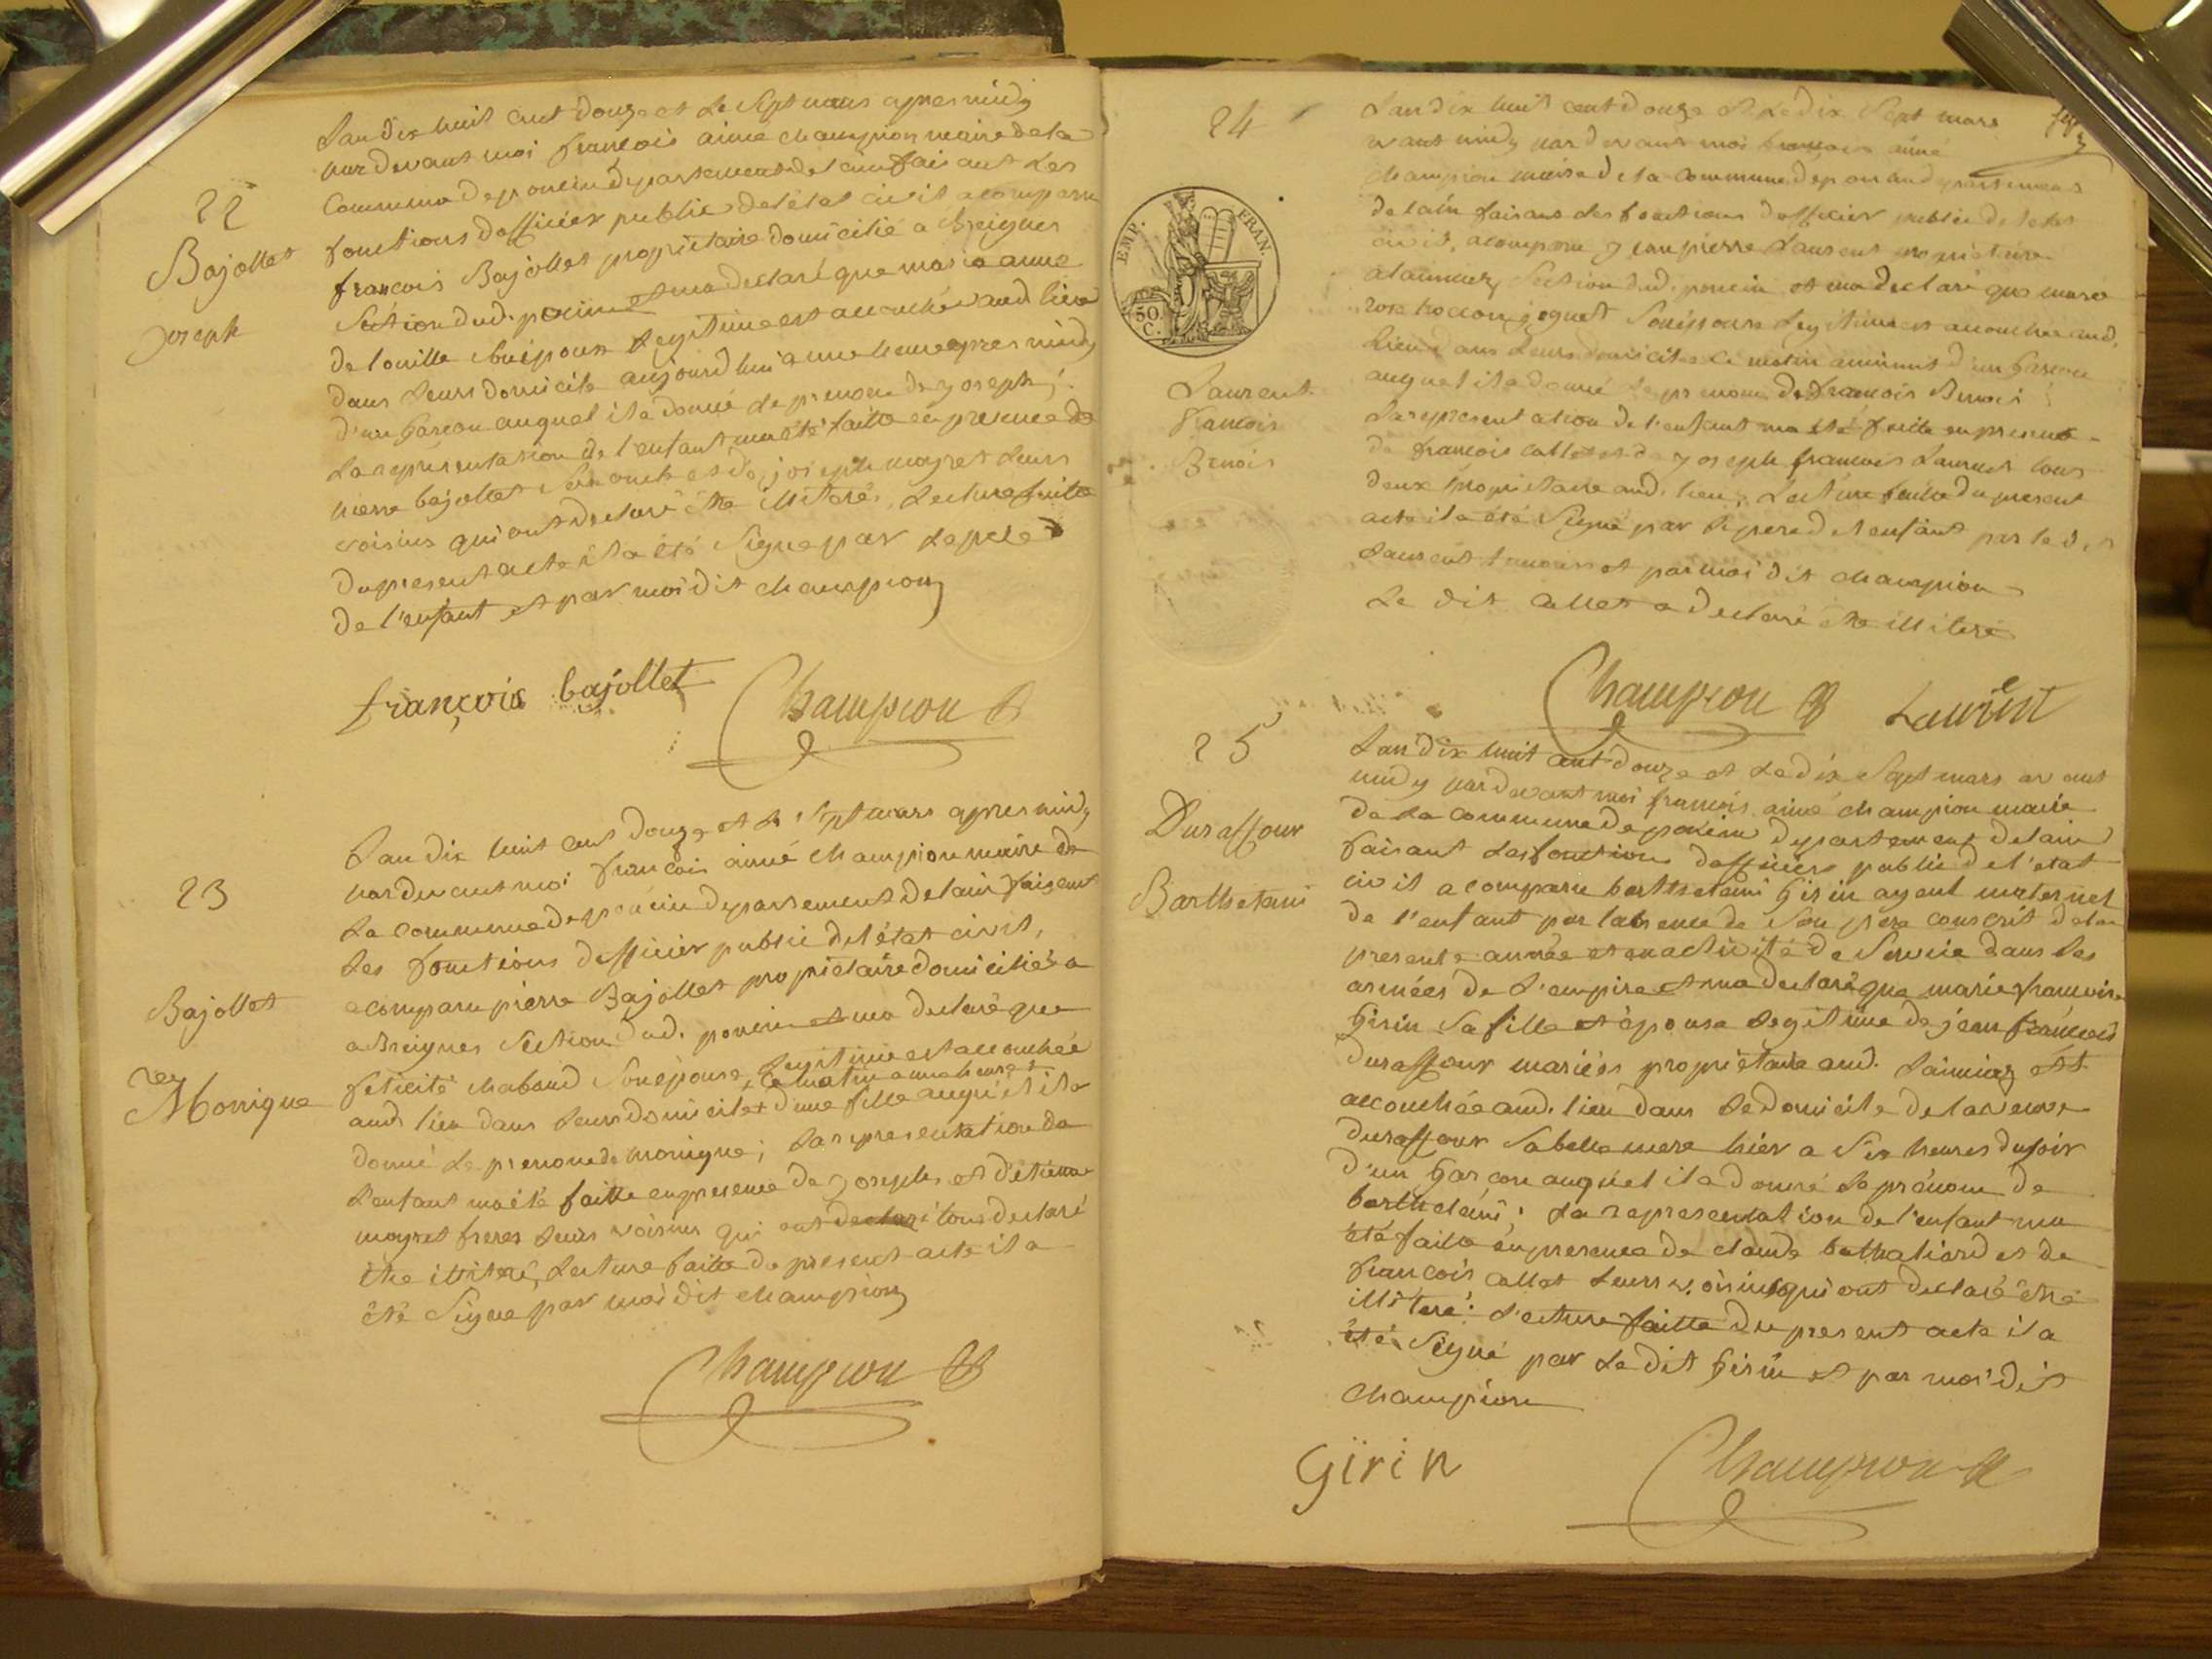 22
Bajollet
Joseph
Lan dix huit cent douze et le Sept mars apres midy
par devant moi françois aimé champion maire de la
Commune de poncin departement de lain faisant les
fonctions dofficier public de létat civil a comparu
françois Bajollet propriétaire domicilié a Breignes
Section dud. poncin et ma declaré que maria anne
de louille son épouse legitime est accouchée aud. lieu
dans leurs domicile aujourd'hui a une heure apres midy
d'un garcon auquel il a donné le prenom de joseph ;
La représentation de l'enfant ma été faitte en presence de
pierre bajollet son oncle et de joseph mayret leurs
voisins qui ont declaré être illiteré, Lecture faitte
du present acte il a été Signé par le pere
de l'enfant et par moi dit champion
françois bajollet
Champion
23
Bajollet
Monique
Lan dix huit cent douze et le Sept mars apres midy
par devant moi françois aimé champion maire de
La commune de poncin departement de lain faisant
les fonctions dofficier public de l'état civil,
a comparu pierre Bajollet propriétaire domicilié a
a Breignes Section dud. poncin et ma declaré que
felicité chaband Son épouse legitime est accouchée
ce matin a une heure
aud. lieu dans leurs domicile + d'une fille auquel il a
donné le prenom de monique ; La representation de
l'enfant ma été faitte en presence de joseph et d'étienne
mayret freres leurs voisins qui ont declaré tous declaré
être illiteré, Lecture faitte du present acte il a
été Signé par moi dit champion
Champion
24
EMP. FRAN.
50 C.
Laurent
françois
Benoit
Lan dix huit cent douze et le dix Sept mars
avant midy par devant moi françois aimé
champion maire de la commune de poncin departement
de lain faisant les fonctions dofficier public de letat
civil, a comparu jean pierre Laurent propriétaire
a laimiaz Section dud. poncin et ma declaré que marie
rose joguet Son épouse legitime est accouchée aud.
Lieu dans leurs domicile ce matin a minuit d'un garcon
auquel il a donné le prenom de françois Benoit ;
La representation de l'enfant ma été faitte en presence
de françois callet et de joseph françois Laurent tous
deux propriétaire aud. lieu ; Lecture faitte du present
acte il a été Signé par le pere de l'enfant par le dit
Laurent temoin et par moi dit champion
Le dit Callet a declaré être illiteré
Champion Laurent
25
Duraffour
Barthelemi
Lan dix huit cent douze et le dix Sept mars avant
midy par devant moi françois aimé champion maire
de la commune de poncin departement de lain
faisant les fonctions dofficier public de l'etat
civil a comparu barthelemi Girin ayeul maternel
de l'enfant par labsence de Son pere conscrit de la
presente année et en activité de Service dans les
armées de l'empire et ma declaré que marie françoise
Girin Sa fille et épouse legitime de jean françois
duraffour mariés propriétaire aud. Laimiaz est
accouchée aud. lieu dans le domicile de la veuve
duraffour Sa belle mere hier a Six heures du soir
d'un garcon auquel il a donné le prénom de
barthelemi ; La representation de l'enfant ma
été faitte en presence de claude bathaliard et de
françois callet leurs voisins qui ont declaré être
illiteré : Lecture faitte du present acte il a
été Signé par le dit Girin et par moi dit
champion
Girin
Champion